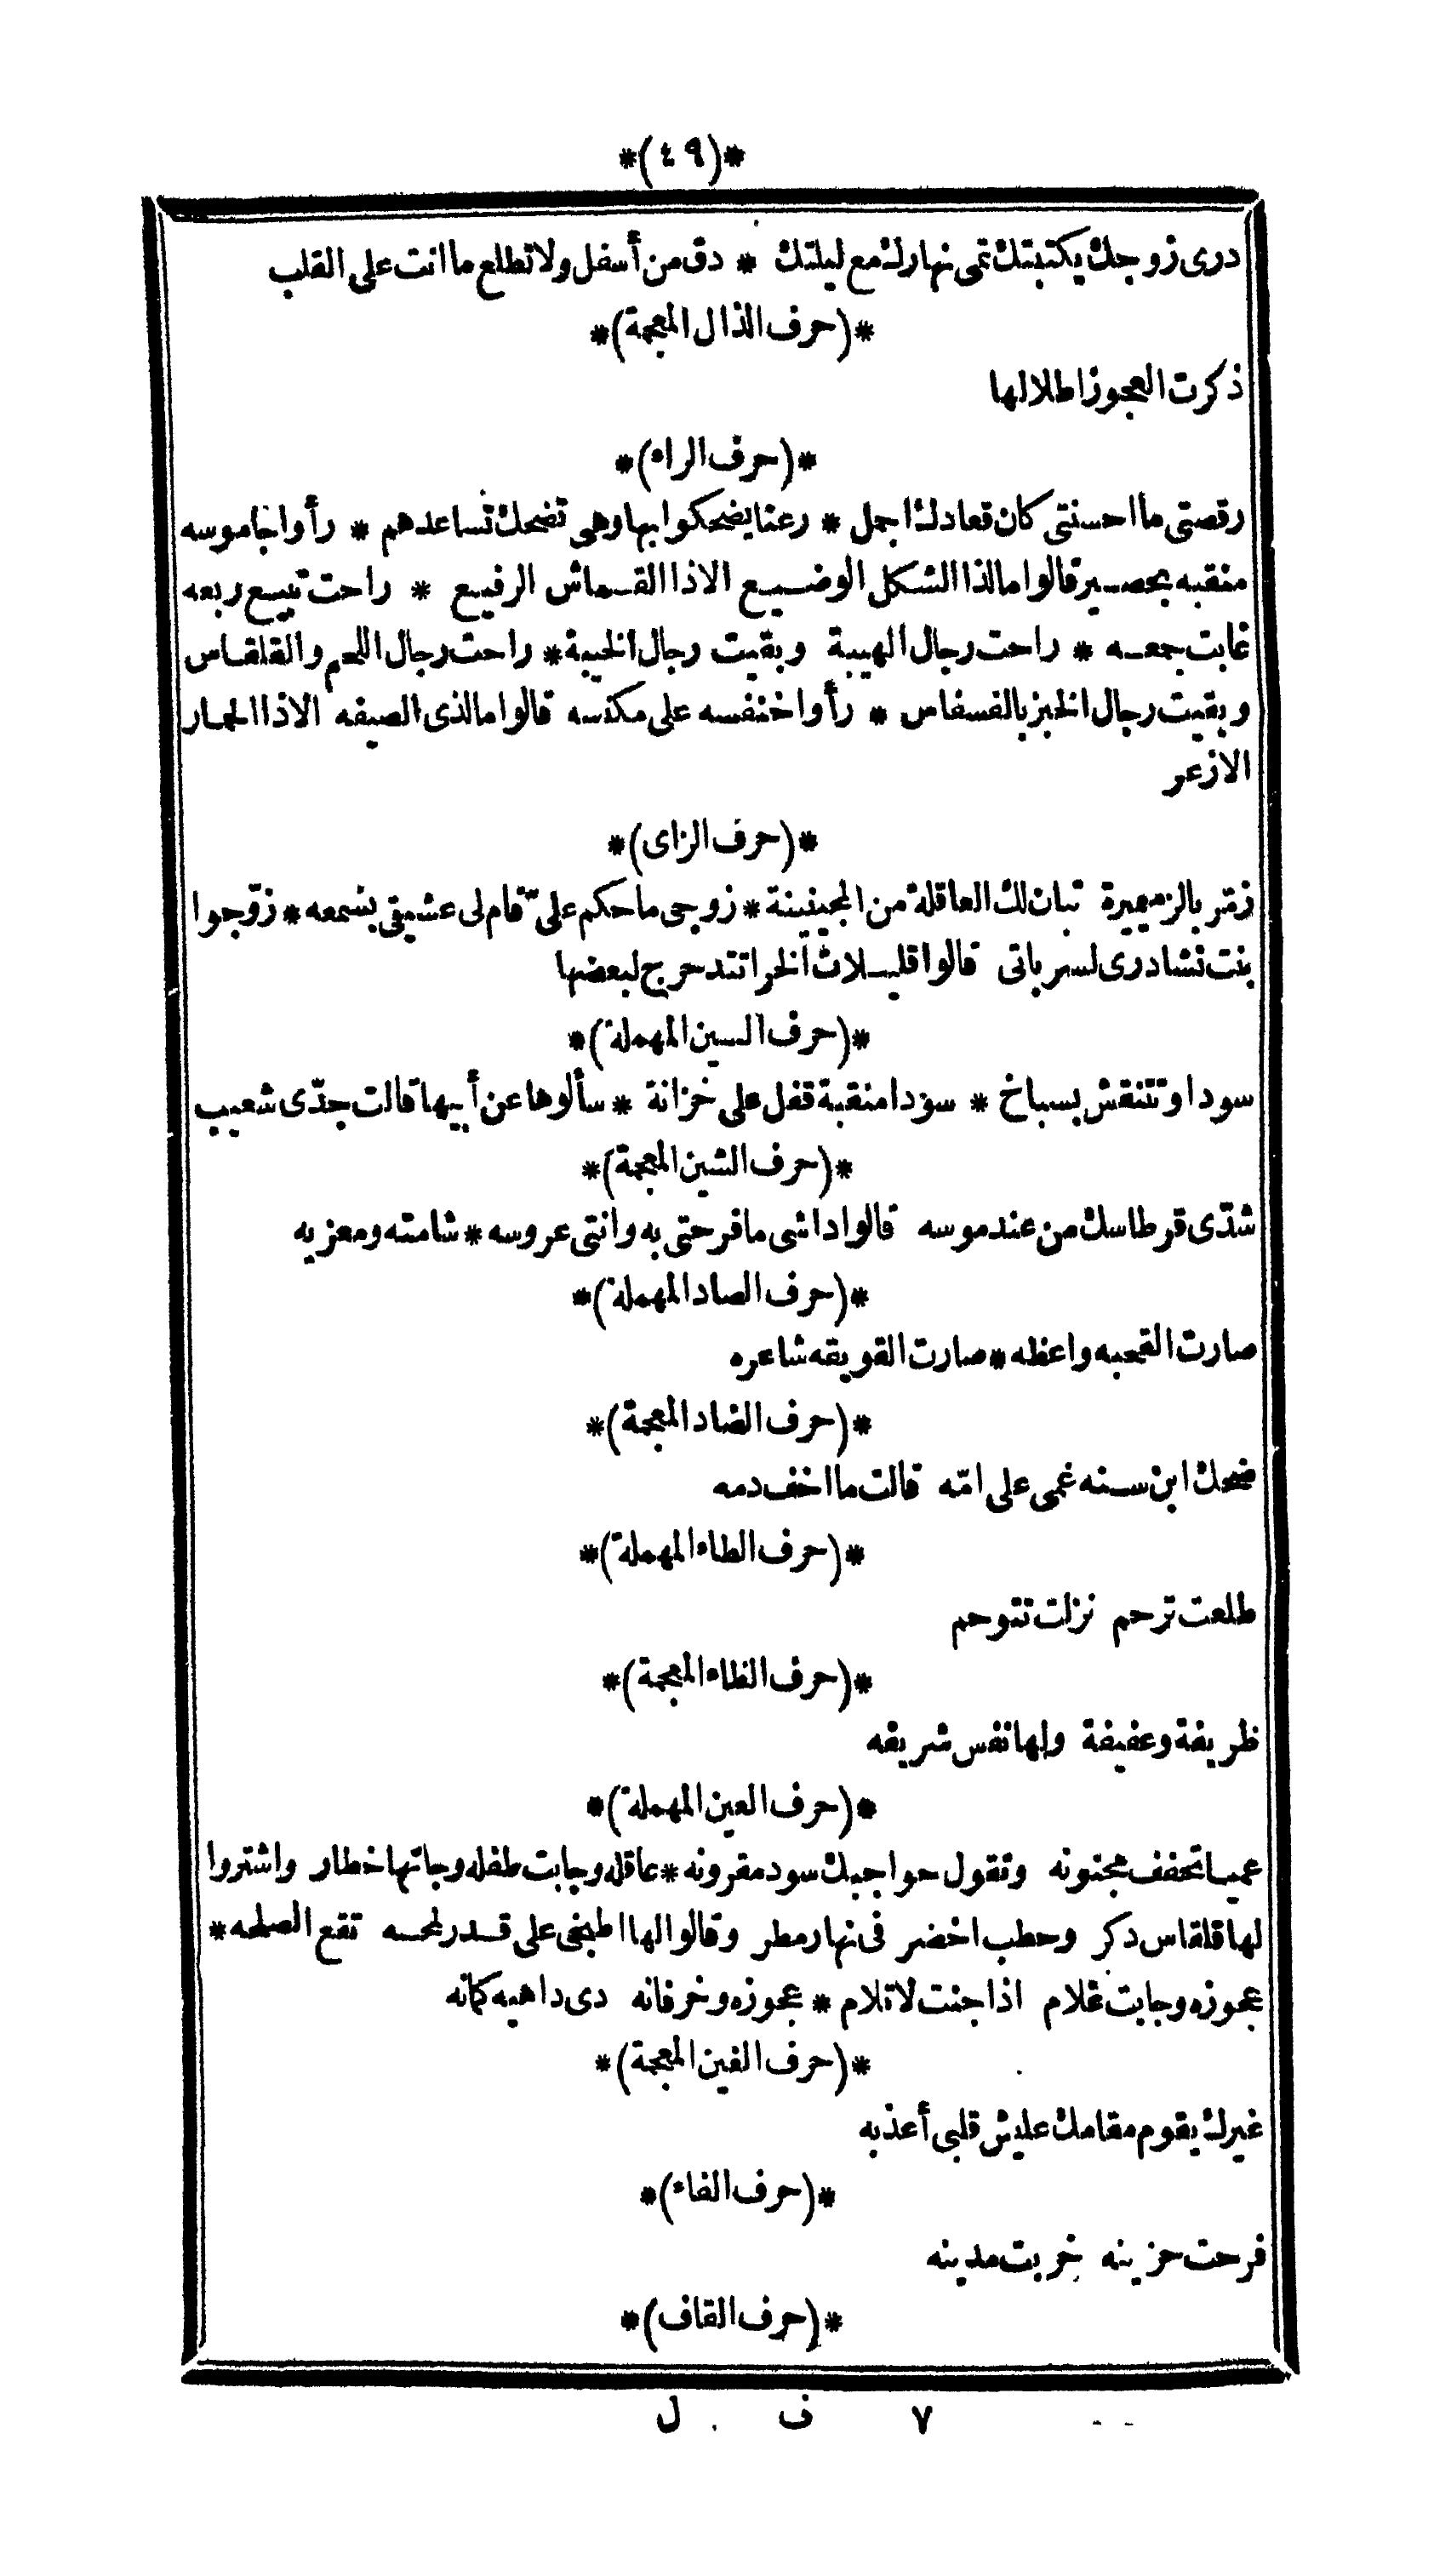 *(٤٩)*
درى زوجك يكتبتك تمى نهارك مع ليلتك * دق من أسفل ولا تطلع ما انت على القلب
*(حرف الذال المعجمة)*
ذكرت العجوز اطلالها
*(حرف الراء)*
رقصتى ما احسنتى كان قعادك اجمل * رعنا يضحكوا بها وهى تضحك تساعدهم * رأوا خاموسه
منقبه بحصير قالوا مالذا الشكل الوضيع الاذا القماش الرفيع * راحت تبيع ربعه
غابت جمعه * راحت رجال الهيبة وبقيت رجال الخيبة * راحت رجال اللحم والقلقاس
وبقيت رجال الخبز بالفسفاس * رأوا خنفسه على مكنسه قالوا مالذى الصيفه الاذا الحمار
الازعر
*(حرف الزاى)*
زمّر بالزميميرة تبان لك العاقلة من المجينينة * زوجى ما حكم علىّ قام لى عشيقى بشمعه * زوّجوا
بنت نشادرى لسرباتى قالوا قليلات الخرا تتدحرج لبعضها
*(حرف السين المهملة)*
سودا وتتنقش بسباخ * سودا منقبة قفل على خزانة * سألوها عن أبيها قالت جدّى شعيب
*(حرف الشين المعجمة)*
شدّى قرطاسك من عند موسه قالوا داشى ما فرحتى به وانتى عروسه * شامته ومعزيه
*(حرف الصاد المهملة)*
صارت القحبه واعظه * صارت القويقه شاعره
*(حرف الضاد المعجمة)*
ضحك ابن سنه غمى على امّه قالت ما اخف دمه
*(حرف الطاء المهملة)*
طلعت ترحم نزلت تتوحم
*(حرف الظاء المعجمة)*
ظريفة وعفيفة ولها نفس شريفه
*(حرف العين المهملة)*
عميا تحفف مجنونه وتقول حواجبك سود مقرونه * عاقله وجابت طفله وجاتها خطار واشتروا
لها قلقاس دكر وحطب اخضر فى نهار مطر وقالوا لها اطبخى على قدر لحسه تقع الصلحه *
عجوزه وجابت غلام اذا جنت لا تلام * عجوزه وخرفانه دى داهيه كمانه
*(حرف الغين المعجمة)*
غيرك يقوم مقامك عليش قلبى أعذبه
*(حرف الفاء)*
فرحت حزينه خربت مدينه
*(حرف القاف)*
٧ ف ل